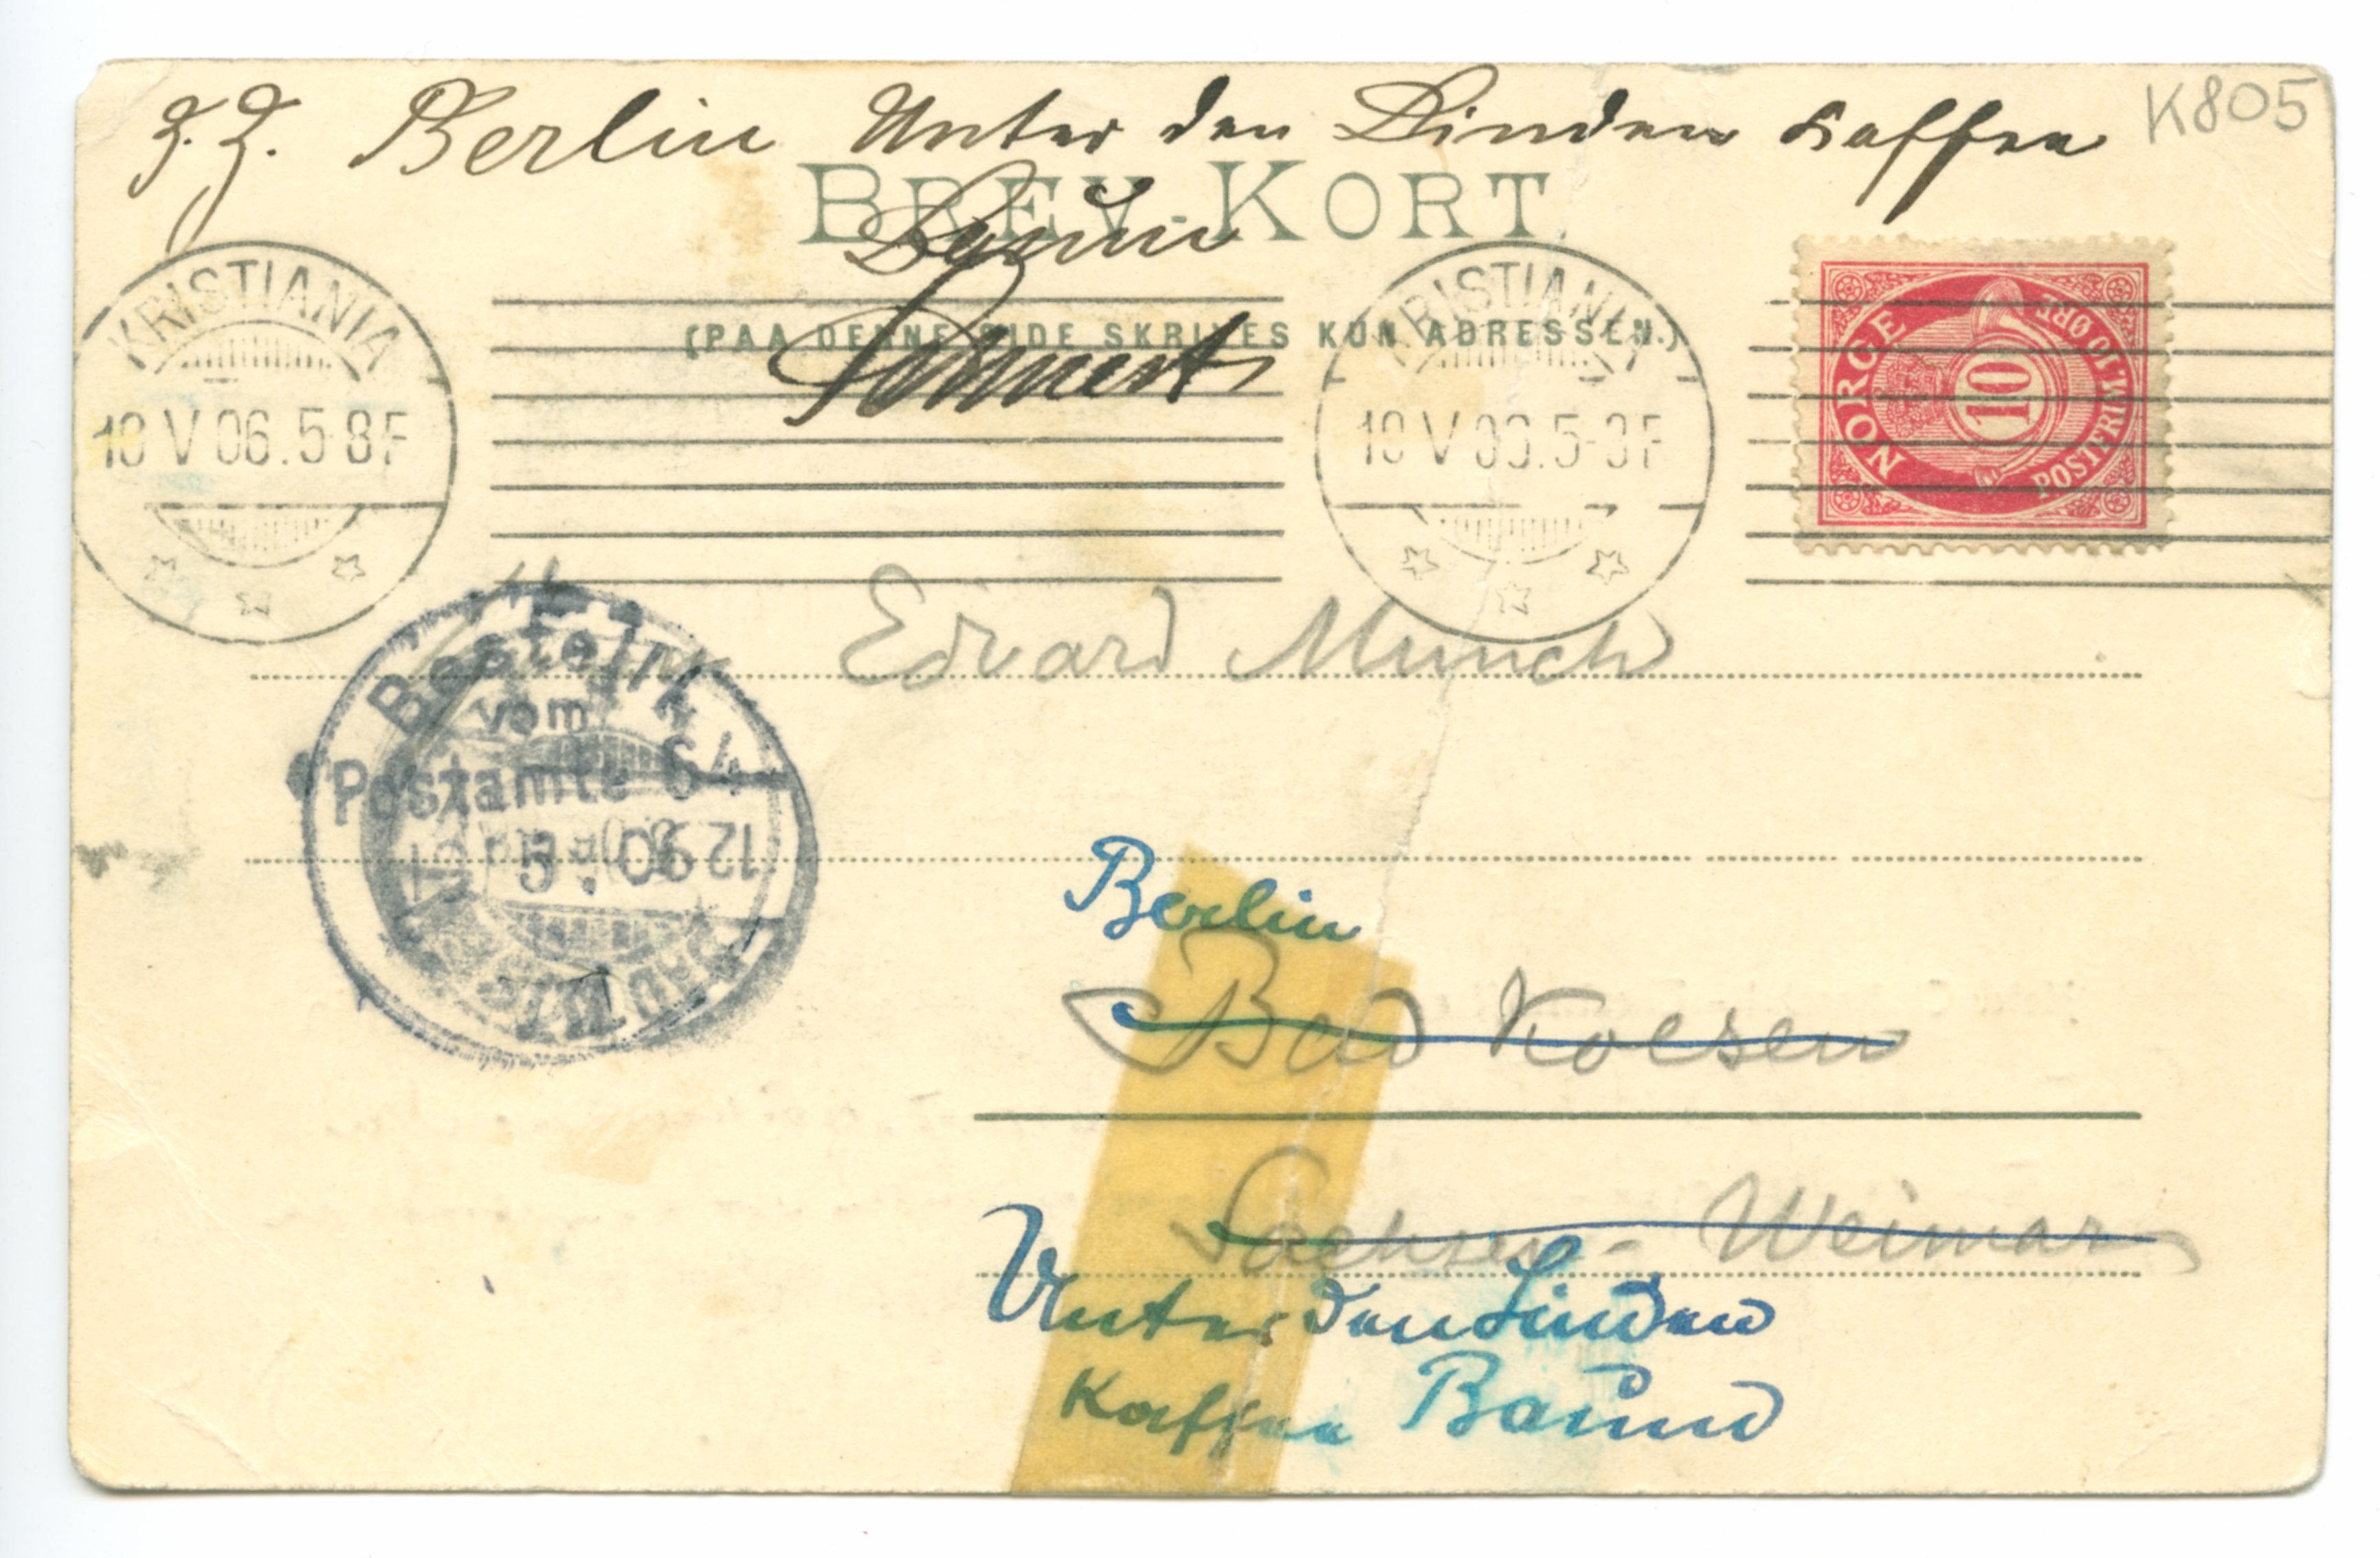 z. Z. Berlin Unter den Linden Kaffee
K805
BREV-KORT.
Bauer
(PAA DENNE SIDE SKRIVES KUN ADRESSEN.)
KRISTIANIA
10 V 06. 5-8 F
KRISTIANIA
10 V 06. 5-8 F
NORGE
10
POSTFRIM. 10 ØRE
Edvard Munch
Bestellt
vom
Postamte 64
12.5.06
Berlin
Bad Koesen
Sachsen-Weimar
Unter den Linden
Kaffee Bauer